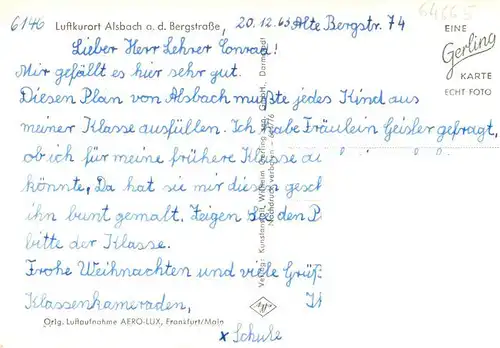 6146 Luftkurort Alsbach a. d. Bergstraße, 20.12.65 Alte Bergstr. 74
64665
Lieber Herr Lehrer Conrad!
Mir gefällt es hier sehr gut.
Diesen Plan von Alsbach mußte jedes Kind aus
meiner Klasse ausfüllen. Ich habe Fräulein Geisler gefragt,
ob ich für meine frühere Klasse au
könnte, Da hat sie mir diesen gesch
ihn bunt gemalt. Zeigen Sie den P
bitte der Klasse.
Frohe Weihnachten und viele Grüß
Klassenkameraden, Ih
Orig. Luftaufnahme AERO-LUX, Frankfurt/Main
x Schule
EINE
Gerling
KARTE
ECHT FOTO
Verlag: Kunstanstalt Wilhelm Gerling Darmstadt
Nachdruck verboten